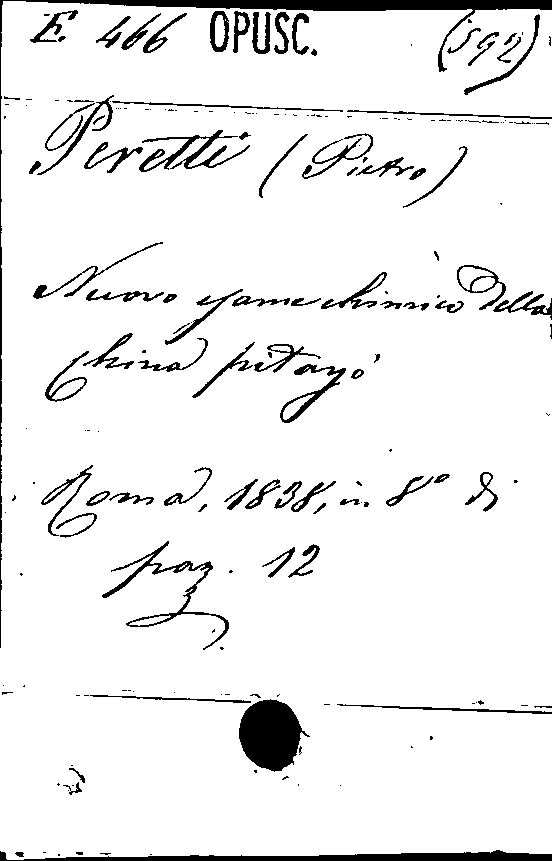 E. 466 OPUSC. (592)
Peretti (Pietro)
Nuovo esame chimico della
China pitayo
Roma, 1838, in 8° di
pag. 12